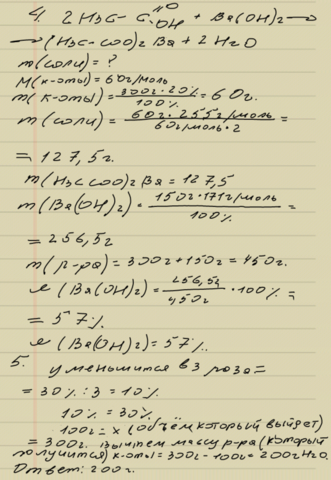 4. 2 H3C - C=O OH + Ba(OH)2 →
→ (H3C-COO)2 Ba + 2 H2O
m(соли) = ?
M(к-оты) = 60г/моль
m(к-оты) = 300г · 20% / 100% = 60г.
m(соли) = 60г · 255г/моль / 60г/моль · 2 =
= 127,5г.
m(H3C COO)2 Ba = 127,5
m(Ba(OH)2) = 150г · 171г/моль / 100% =
= 256,5г
m(р-ра) = 300г + 150г = 450г.
w(Ba(OH)2) = 256,5г / 450г · 100% =
= 57%
w(Ba(OH)2) = 57%.
5. уменьшится в 3 роза =
= 30% : 3 = 10%
10% = 30%
100г = x (объём который выйдет)
= 300г. Вычтем массу р-ра (который
получится) к-оты = 300г - 100г = 200г H2O.
Ответ: 200г.